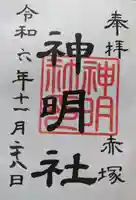 奉拝 赤塚
神明社
令和六年十一月二十八日